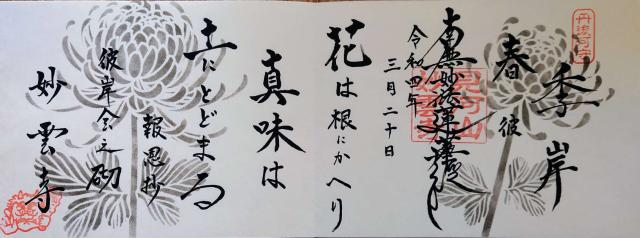 春季
彼岸
南無妙法蓮華経
令和四年
三月二十日
花は根にかへり
真味は
土にとどまる
報恩抄
彼岸会之砌
妙雲寺